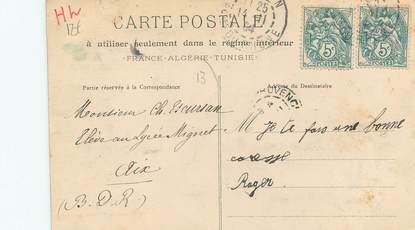 CARTE POSTALE
à utiliser seulement dans le régime intérieur
FRANCE-ALGÉRIE-TUNISIE
13
Partie réservée à la Correspondance
Adresse du Destinataire
Monsieur Ch.
Elève au Lycée Mignet
Aix
(B.D.R)
M Je te fais une bonne
Roger